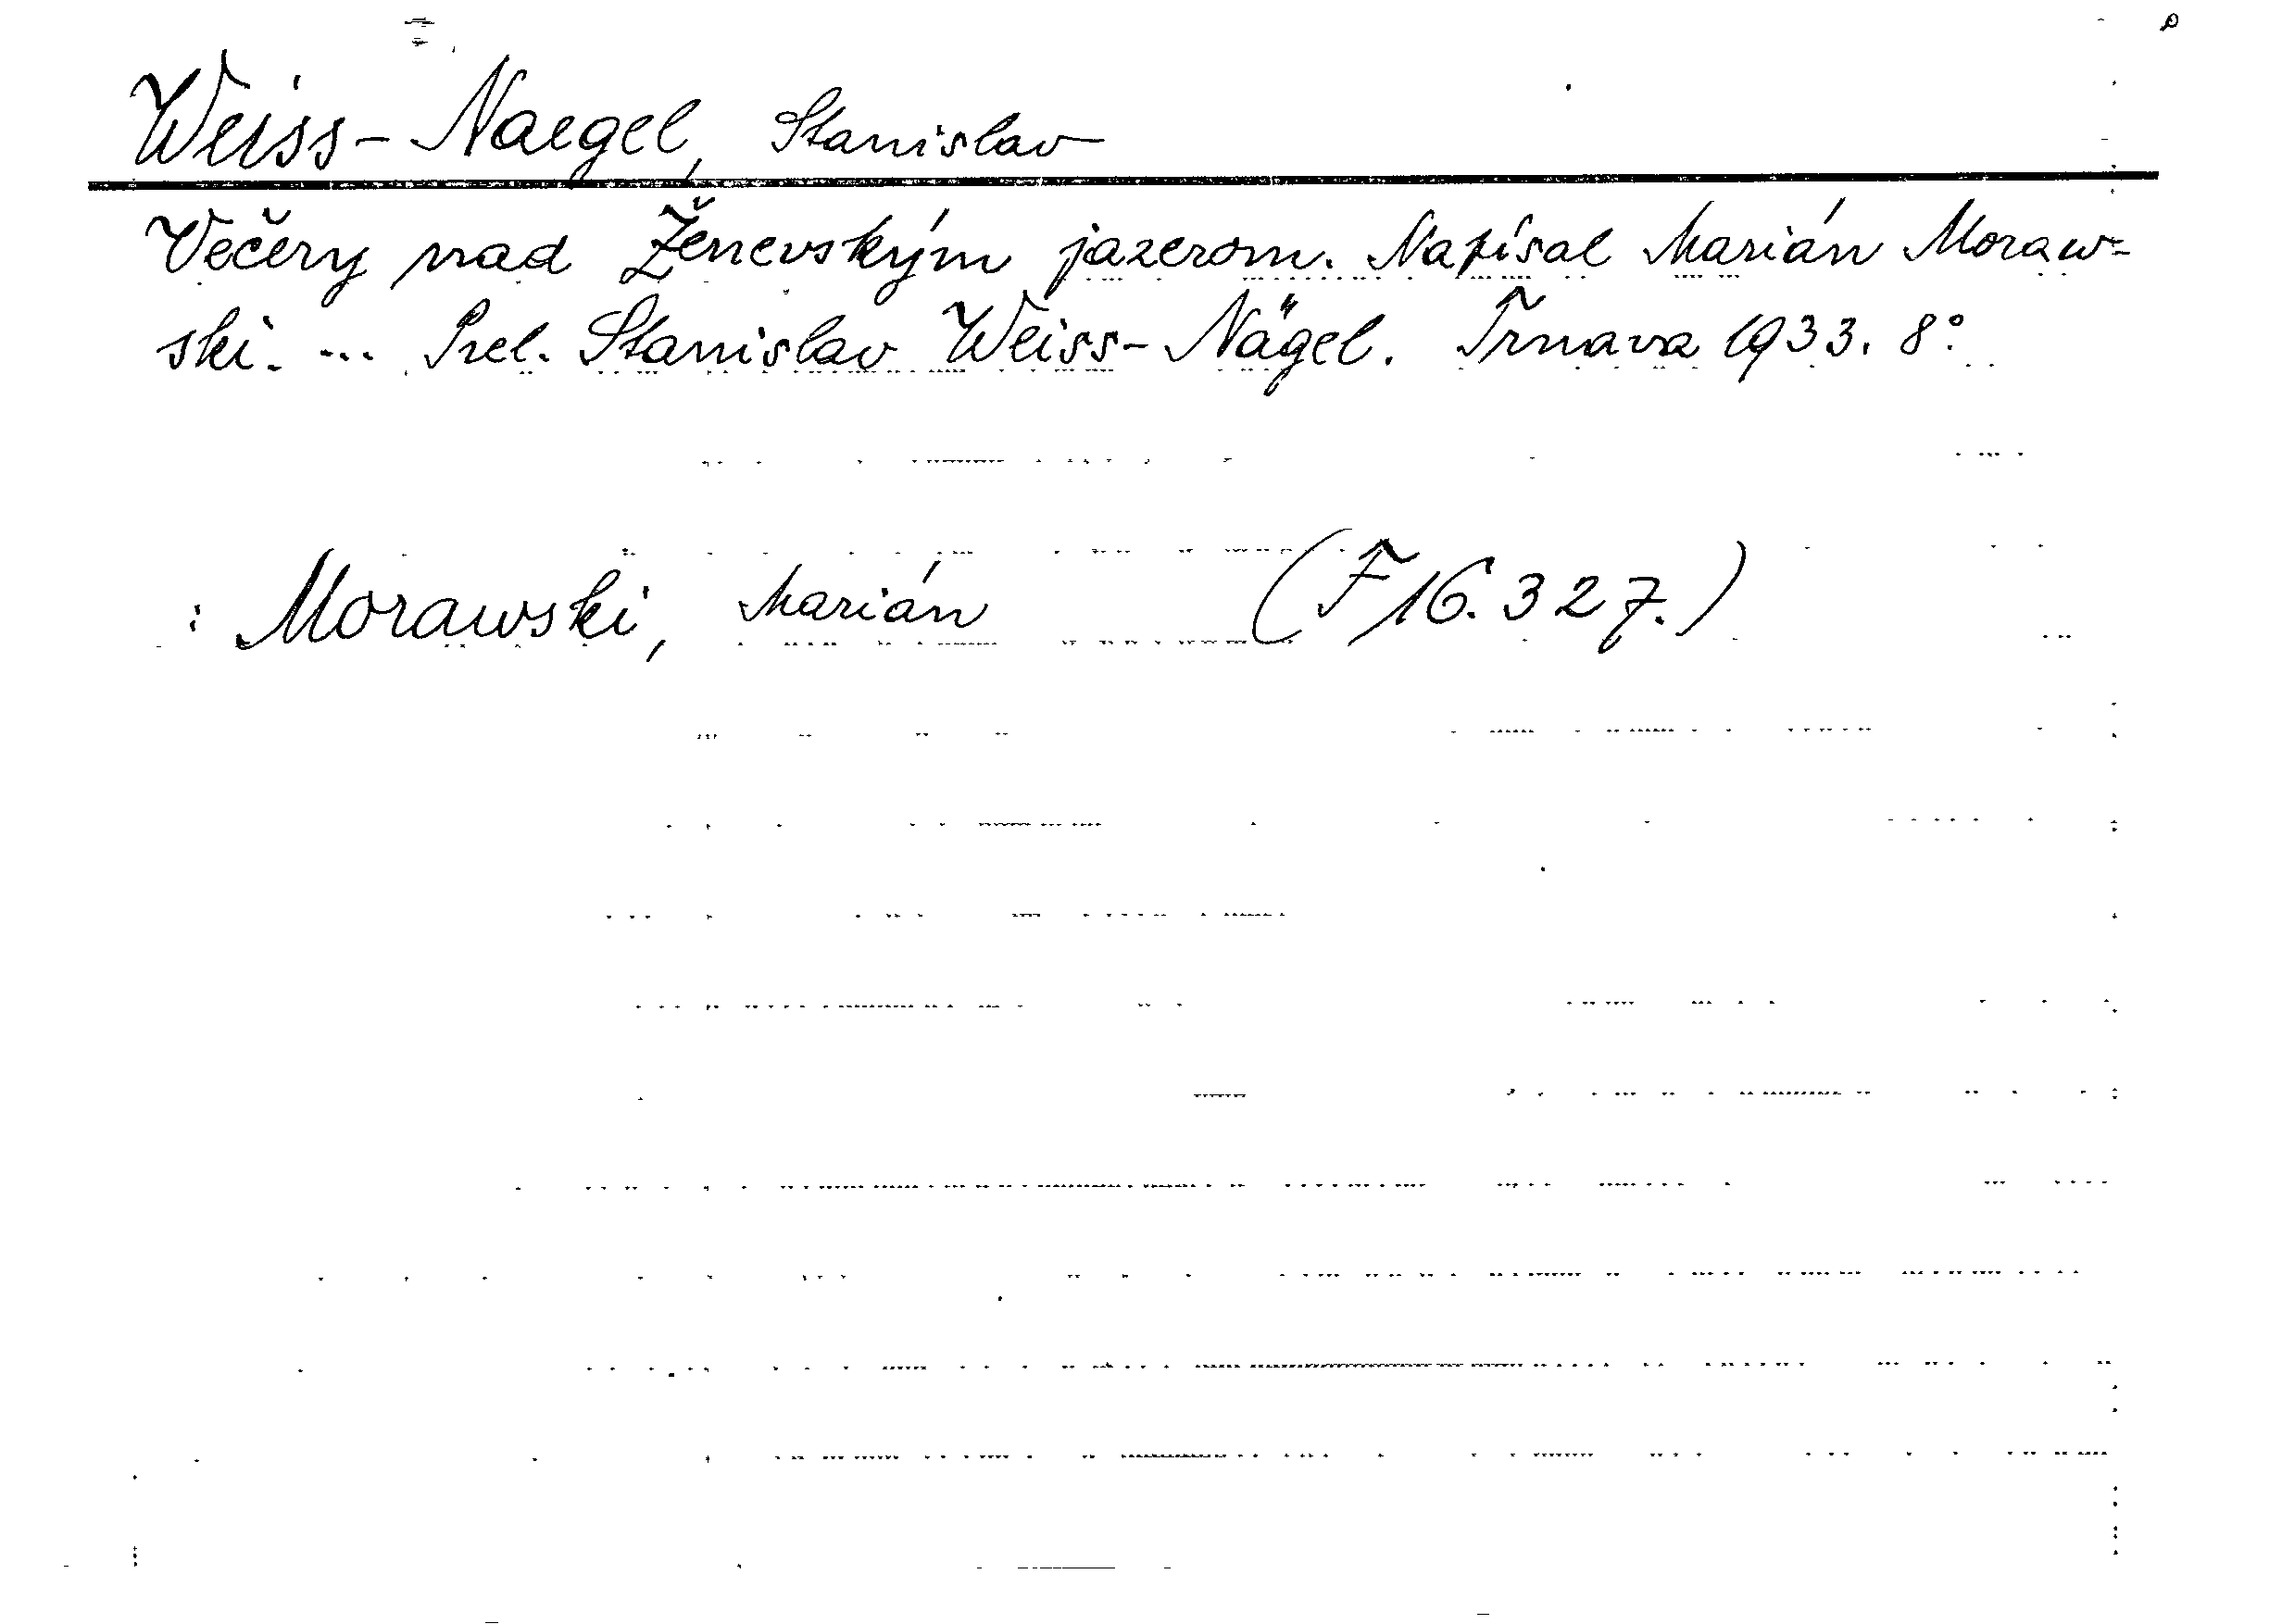 Weiss-Naegel, Stanislav
Večery nad Ženevským jazerom. Napísal Marián Moraw-
ski. ... Prel. Stanislav Weiss-Nägel. Trnava 1933. 8°.
: Morawski, Marián (F 16.327.)